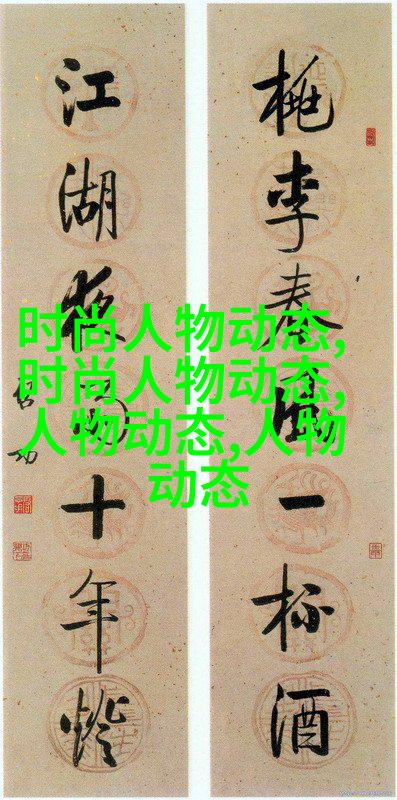 桃李春風一杯酒
江湖夜雨十年燈
啓功
时尚人物动态,
时尚人物动态,
人物动态,人物
动态